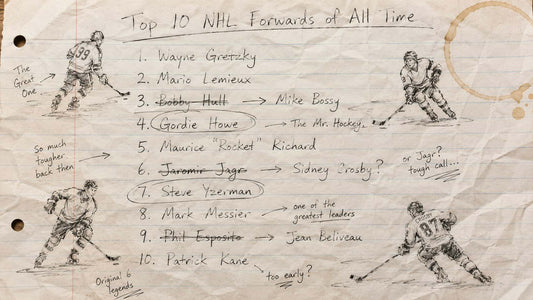 Top 10 NHL Forwards of All Time
99
The Great One
1. Wayne Gretzky
2. Mario Lemieux
3. Bobby Hull → Mike Bossy
4. Gordie Howe → The Mr. Hockey.
So much tougher back then
5. Maurice "Rocket" Richard
6. Jaromir Jagr → Sidney Crosby?
or Jagr? tough call...
7. Steve Yzerman
8. Mark Messier → one of the greatest leaders
9. Phil Esposito → Jean Beliveau
87
10. Patrick Kane → too early?
Original 6 legends